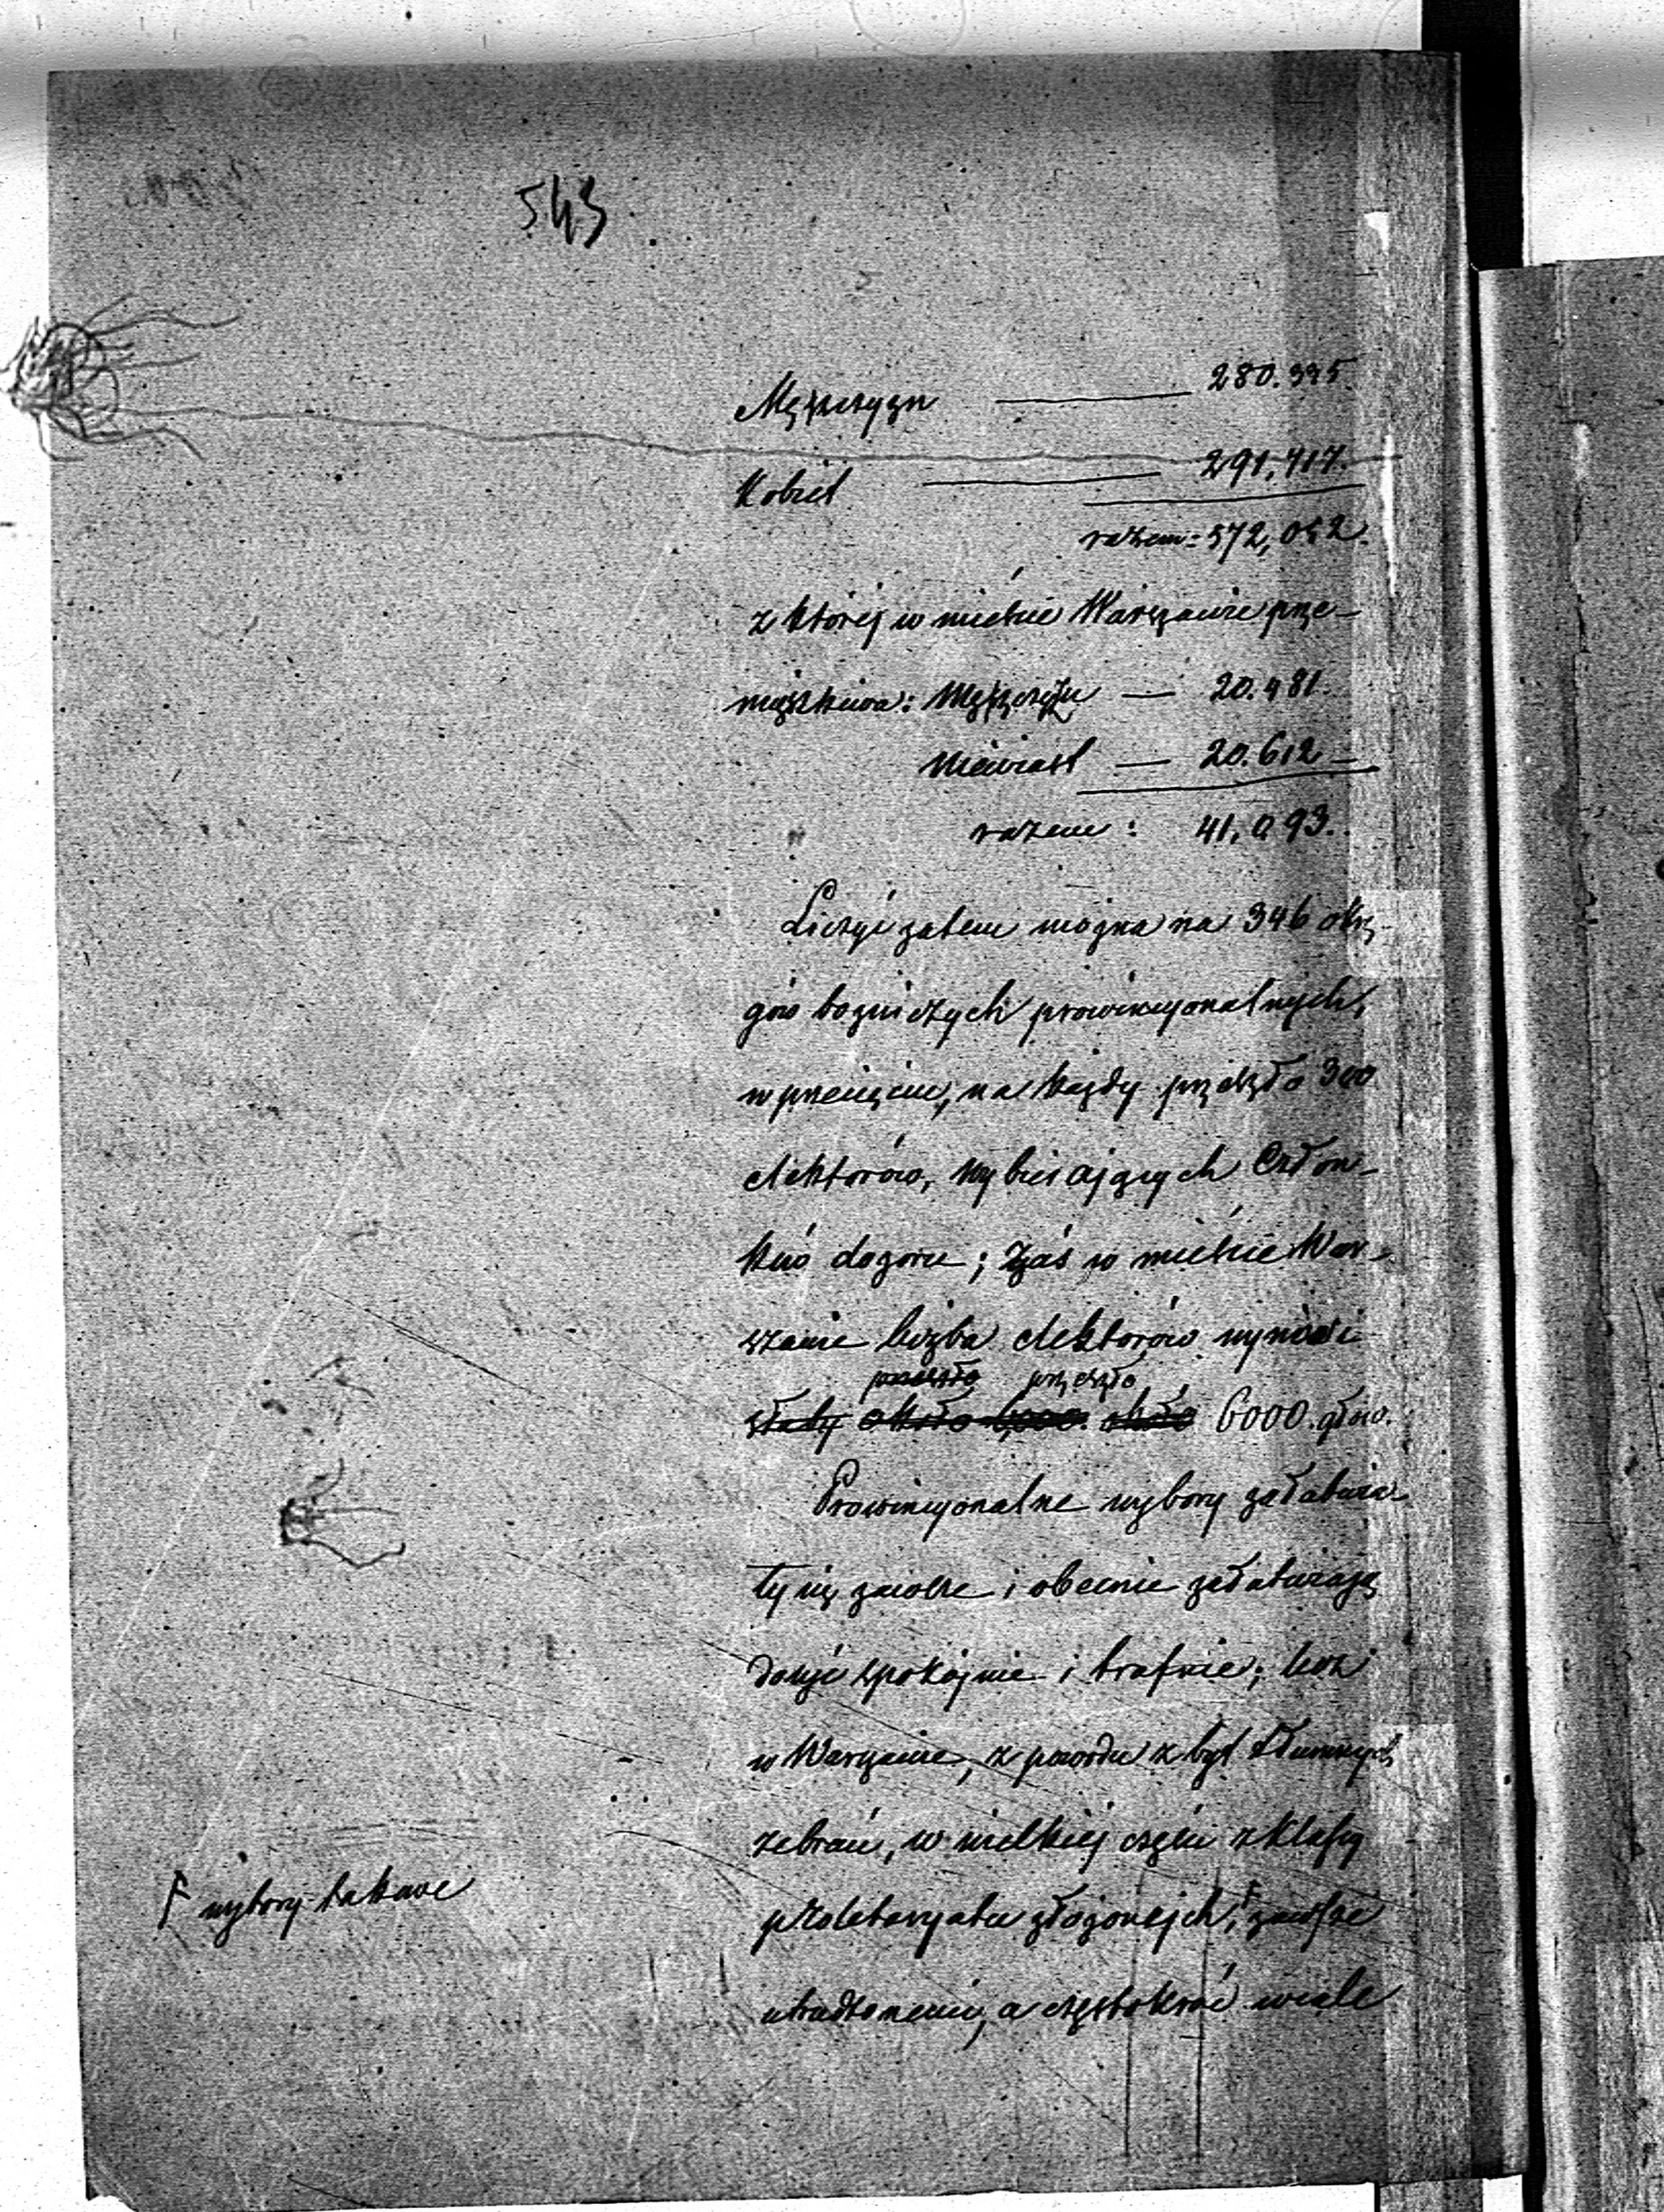 543
Mężczyzn — 280.335.
Kobiet — 291,717.
razem = 572,052.
z której w mieście Warszawie prze-
mieszkiwa: Mężczyzn — 20.481.
Niewiast — 20.612 —
razem: 41,093.
Liczyć zatem można na 346 okrę-
gów bożniczych prowincyonalnych,
w przecięciu, na każdy przeszło 300
elektorów, wybierających Człon-
ków dozoru; zaś w mieście War-
szawie liczba elektorów wynosi
przeszło przeszło
około około 6000 głów.
Prowincyonalne wybory załatwia-
ły się zawsze i obecnie załatwiają
dosyć spokojnie i trafnie; lecz
w Warszawie, z powodu zbyt tłumnych
zebrań, w wielkiej części z klassy
proletaryatu złożonych, F zawsze
F wybory takowe
utrudnione, a częstokroć wcale